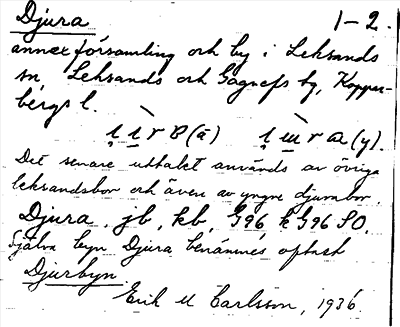 Djura 1-2.
annexförsamling och by i Leksands
sn Leksands och Gagnefs tg, Koppar-
bergs l.
(ä) (y).
Det senare uttalet används av övriga
leksandsbor och även av yngre djurabor.
Djura, jb, kb, G96 k G96 SO.
Själva byn Djura benämnes oftast
Djurbyn
Erik M Carlsson, 1936.